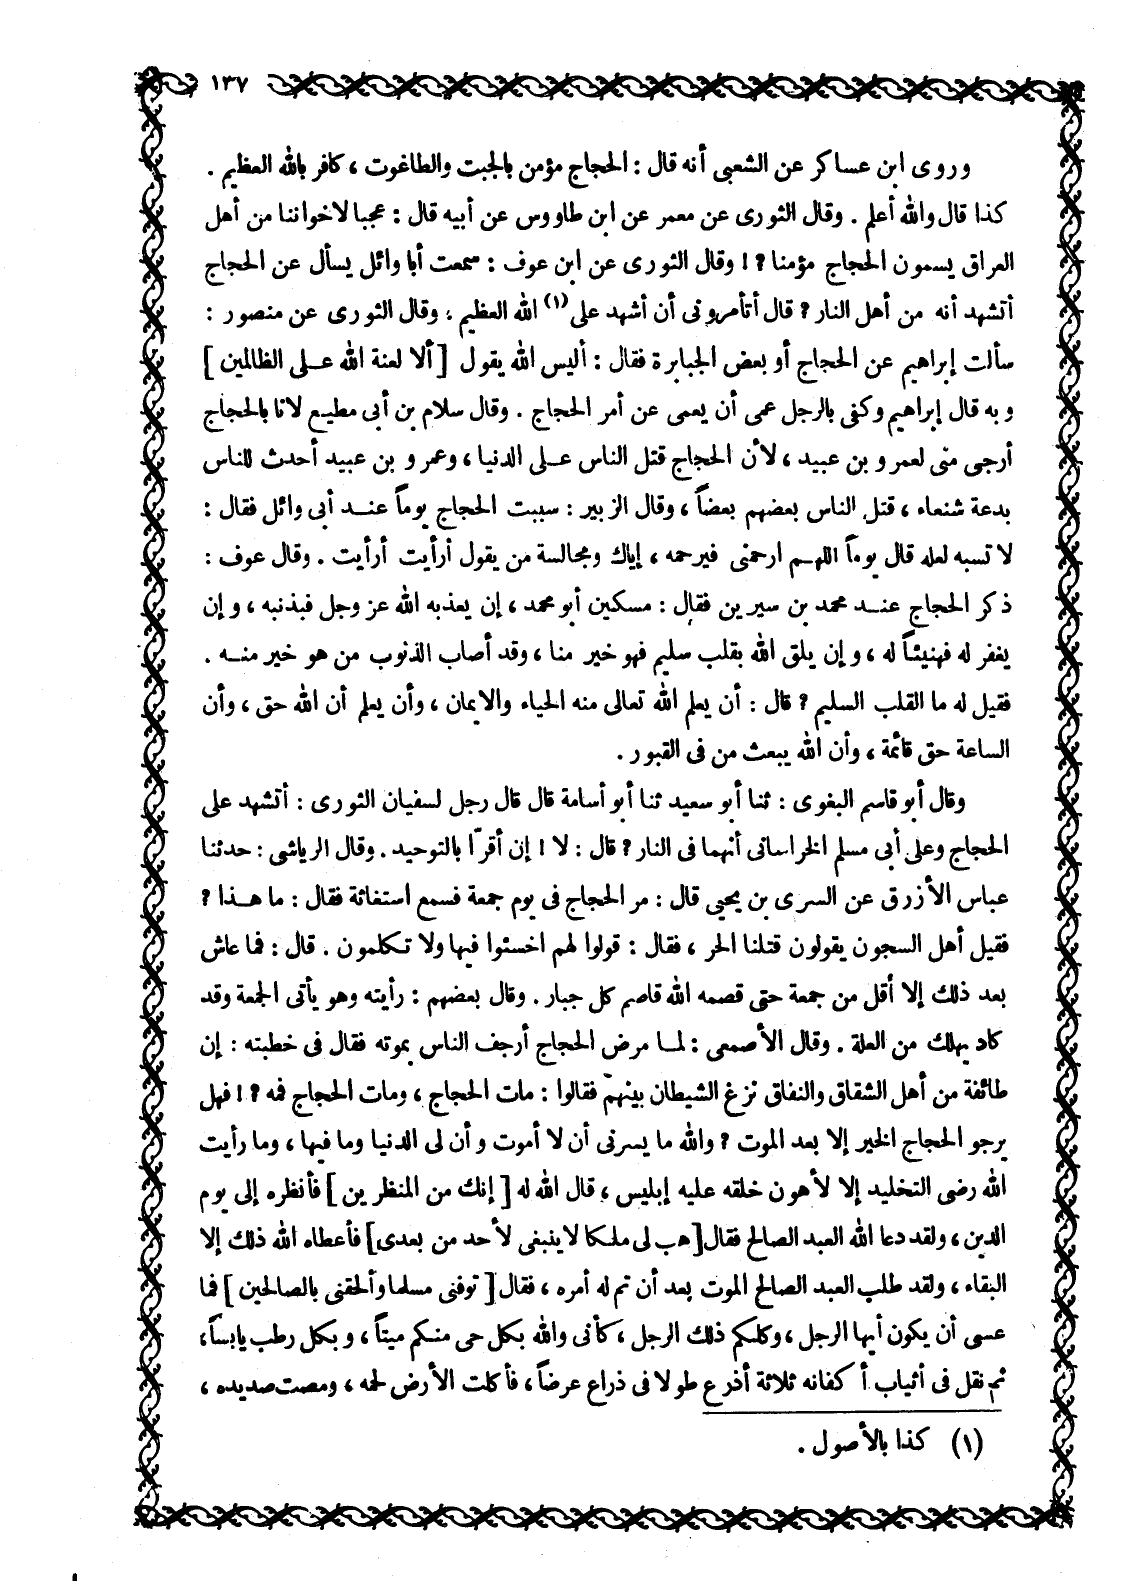 ١٣٧
وروى ابن عساكر عن الشعبى أنه قال : الحجاج مؤمن بالجبت والطاغوت ، كافر بالله العظيم .
كذا قال والله أعلم . وقال الثورى عن معمر عن ابن طاووس عن أبيه قال : عجبا لاخواننا من أهل
العراق يسمون الحجاج مؤمنا ؟ ! وقال الثورى عن ابن عوف : سمعت أبا وائل يسأل عن الحجاج
أتشهد أنه من أهل النار ؟ قال أتأمرونى أن أشهد على (١) الله العظيم ، وقال الثورى عن منصور :
سألت إبراهيم عن الحجاج أو بعض الجبابرة فقال : أليس الله يقول [ ألا لعنة الله على الظالمين ]
وبه قال إبراهيم وكفى بالرجل عمى أن يعمى عن أمر الحجاج . وقال سلام بن أبى مطيع لانا بالحجاج
أرجى منى لعمرو بن عبيد ، لأن الحجاج قتل الناس على الدنيا ، وعمرو بن عبيد أحدث للناس
بدعة شنعاء ، قتل الناس بعضهم بعضاً ، وقال الزبير : سببت الحجاج يوماً عند أبى وائل فقال :
لا تسبه لعله قال يوماً اللهم ارحمنى فيرحمه ، إياك ومجالسة من يقول أرأيت أرأيت . وقال عوف :
ذكر الحجاج عند محمد بن سيرين فقال : مسكين أبو محمد ، إن يعذبه الله عز وجل فبذنبه ، وإن
يغفر له فهنيئاً له ، وإن يلق الله بقلب سليم فهو خير منا ، وقد أصاب الذنوب من هو خير منه .
فقيل له ما القلب السليم ؟ قال : أن يعلم الله تعالى منه الحياء والايمان ، وأن يعلم أن الله حق ، وأن
الساعة حق قائمة ، وأن الله يبعث من فى القبور .
وقال أبو قاسم البغوى : ثنا أبو سعيد ثنا أبو أسامة قال قال رجل لسفيان الثورى : أتشهد على
الحجاج وعلى أبى مسلم الخراسانى أنهما فى النار ؟ قال : لا ! إن أقرّا بالتوحيد . وقال الرياشى : حدثنا
عباس الأزرق عن السرى بن يحيى قال : مر الحجاج فى يوم جمعة فسمع استغاثة فقال : ما هذا ؟
فقيل أهل السجون يقولون قتلنا الحر ، فقال : قولوا لهم اخسئوا فيها ولا تكلمون . قال : فما عاش
بعد ذلك إلا أقل من جمعة حتى قصمه الله قاصم كل جبار . وقال بعضهم : رأيته وهو يأتى الجمعة وقد
كاد يهلك من العلة . وقال الأصمعى : لما مرض الحجاج أرجف الناس بموته فقال فى خطبته : إن
طائفة من أهل الشقاق والنفاق نزغ الشيطان بينهم فقالوا : مات الحجاج ، ومات الحجاج فمه ؟ ! فهل
يرجو الحجاج الخير إلا بعد الموت ؟ والله ما يسرنى أن لا أموت وأن لى الدنيا وما فيها ، وما رأيت
الله رضى التخليد إلا لأهون خلقه عليه إبليس ، قال الله له [ إنك من المنظرين ] فأنظره إلى يوم
الدين ، ولقد دعا الله العبد الصالح فقال [ هب لى ملكا لا ينبغى لأحد من بعدى ] فأعطاه الله ذلك إلا
البقاء ، ولقد طلب العبد الصالح الموت بعد أن تم له أمره ، فقال [ توفنى مسلما وألحقنى بالصالحين ] فما
عسى أن يكون أيها الرجل ، وكلكم ذلك الرجل ، كأنى والله بكل حى منكم ميتاً ، وبكل رطب يابساً ،
ثم نقل فى أثياب أكفانه ثلاثة أذرع طولا فى ذراع عرضاً ، فأكلت الأرض لحمه ، ومصت صديده ،
(١) كذا بالأصول .